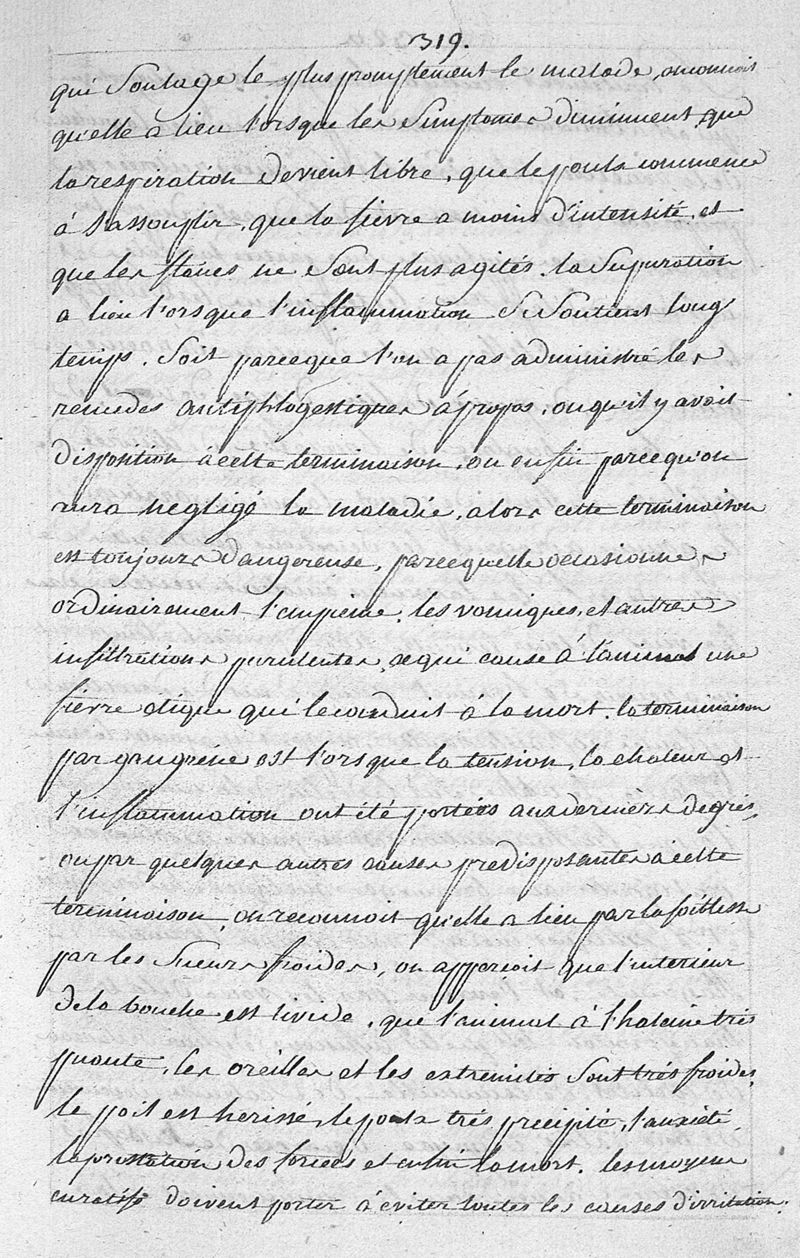 319.
qui Soulage le plus promptement le malade, on connoit
qu'elle à lieu lorsque les Simptomes diminuent, que
la respiration devient libre, que le pouls commence
à s'assouplir, que la fievre a moins d'intensité, et
que les flancs ne Sont plus agités. la Supuration
a lieu lorsque l'inflammation Se Soutient long
temps. Soit parceque l'on a pas administré les
remedes antiphlogestiques àpropos, ou qu'il y avoit
disposition a cette terminaison, ou enfin parcequ'on
aura negligé la maladie, alors cette terminaison
est toujours dangereuse, parcequelle occasionne
ordinairement l'empieme, les vomiques, et autres
infiltrations purulentes, ce qui cause à l'animal une
fievre etique qui le conduit a la mort. la terminaison
par gangrene est lorsque la tension, la chaleur et
l'inflammation ont été portées aux derniers degrés,
ou par quelques autres causes predisposantes a cette
terminaison, on reconnoit qu'elle a lieu par la foiblesse
par les Sueurs froides, on apperçoit que l'interieur
de la bouche est livide, que l'animal à l'haleine trés
puante, les oreilles et les extremités Sont trés froides,
le poil est herissé, le pouls trés precipité, l'anxiété,
la prostration des forces et enfin la mort. les moyens
curatifs doivent porter à éviter toutes les causes d'irritation.